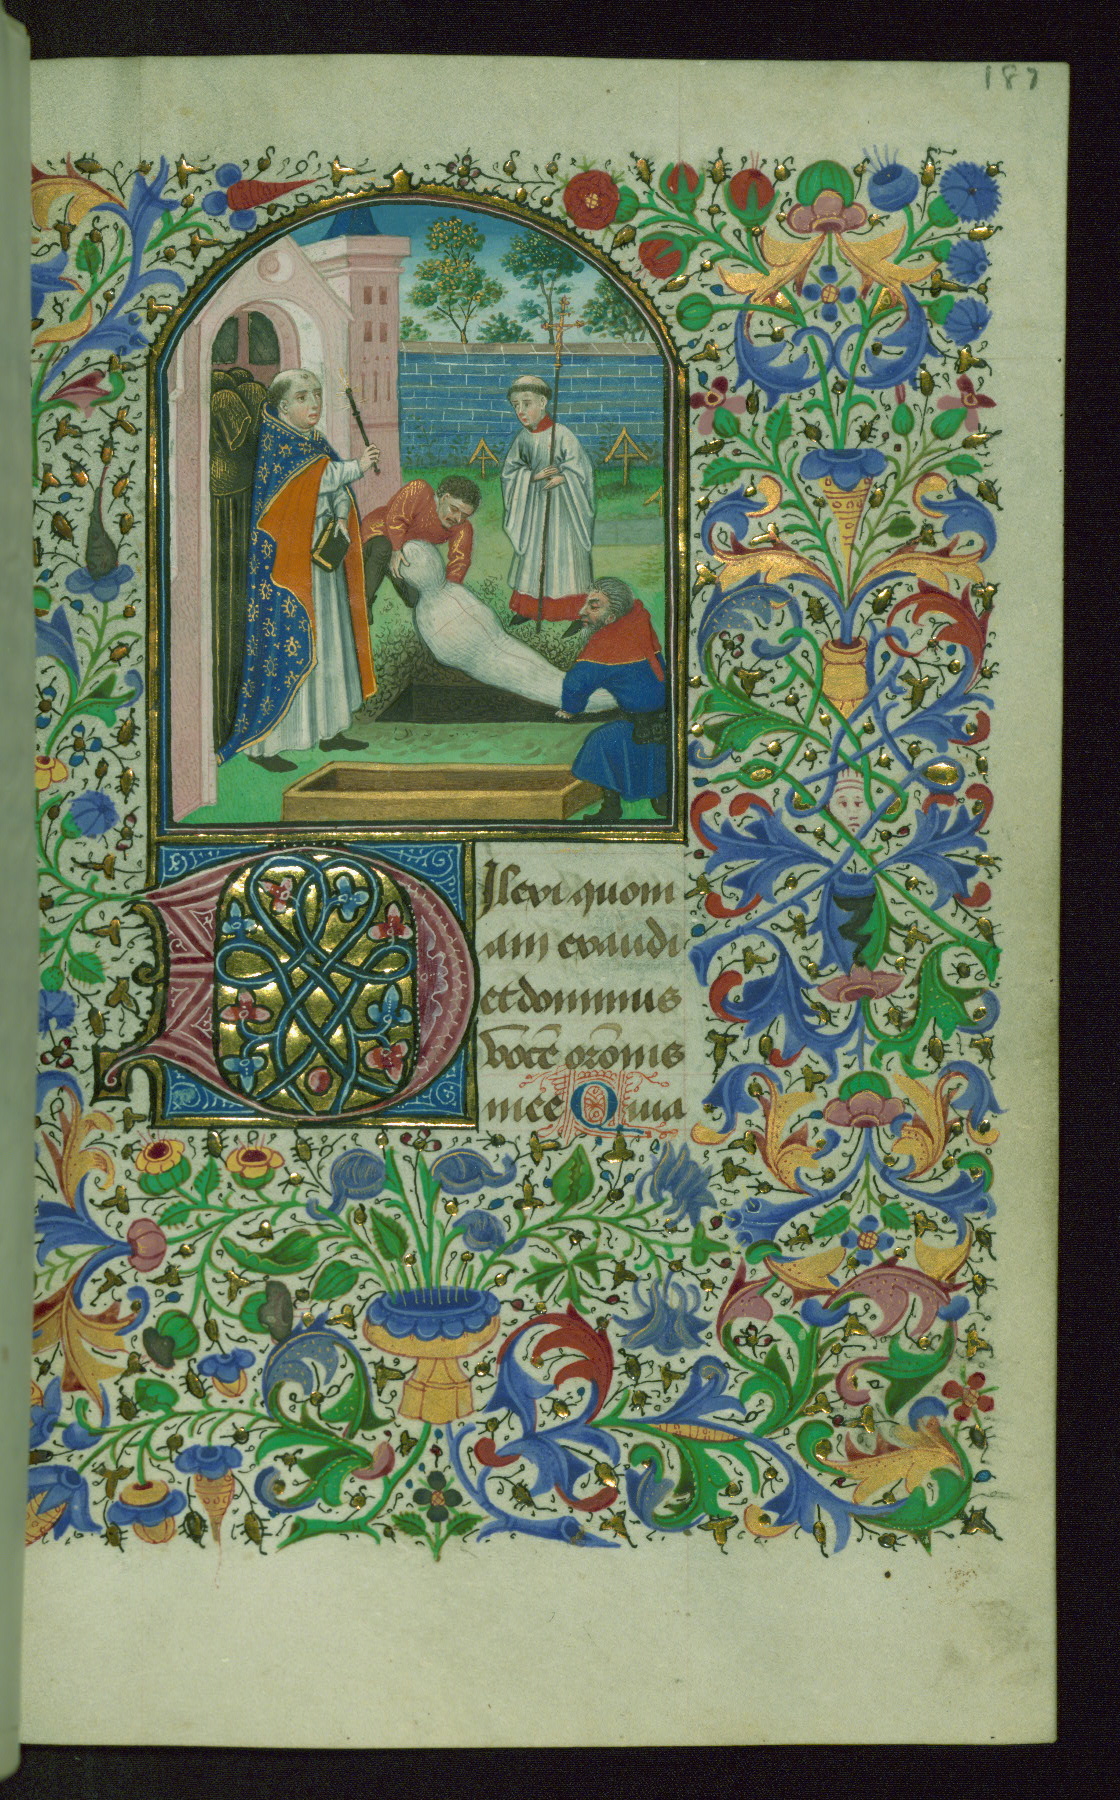 187
Dilexi quoni
am exaudi
et dominus
voce͂ or͂onis
mee Quia